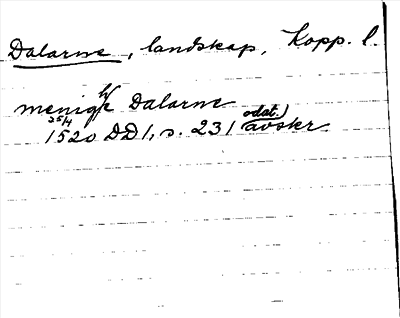 Dalarne, landskap, Kopp. l.
menighe Dalarne
25/4 1520 DD 1, s. 231 odat. avskr.